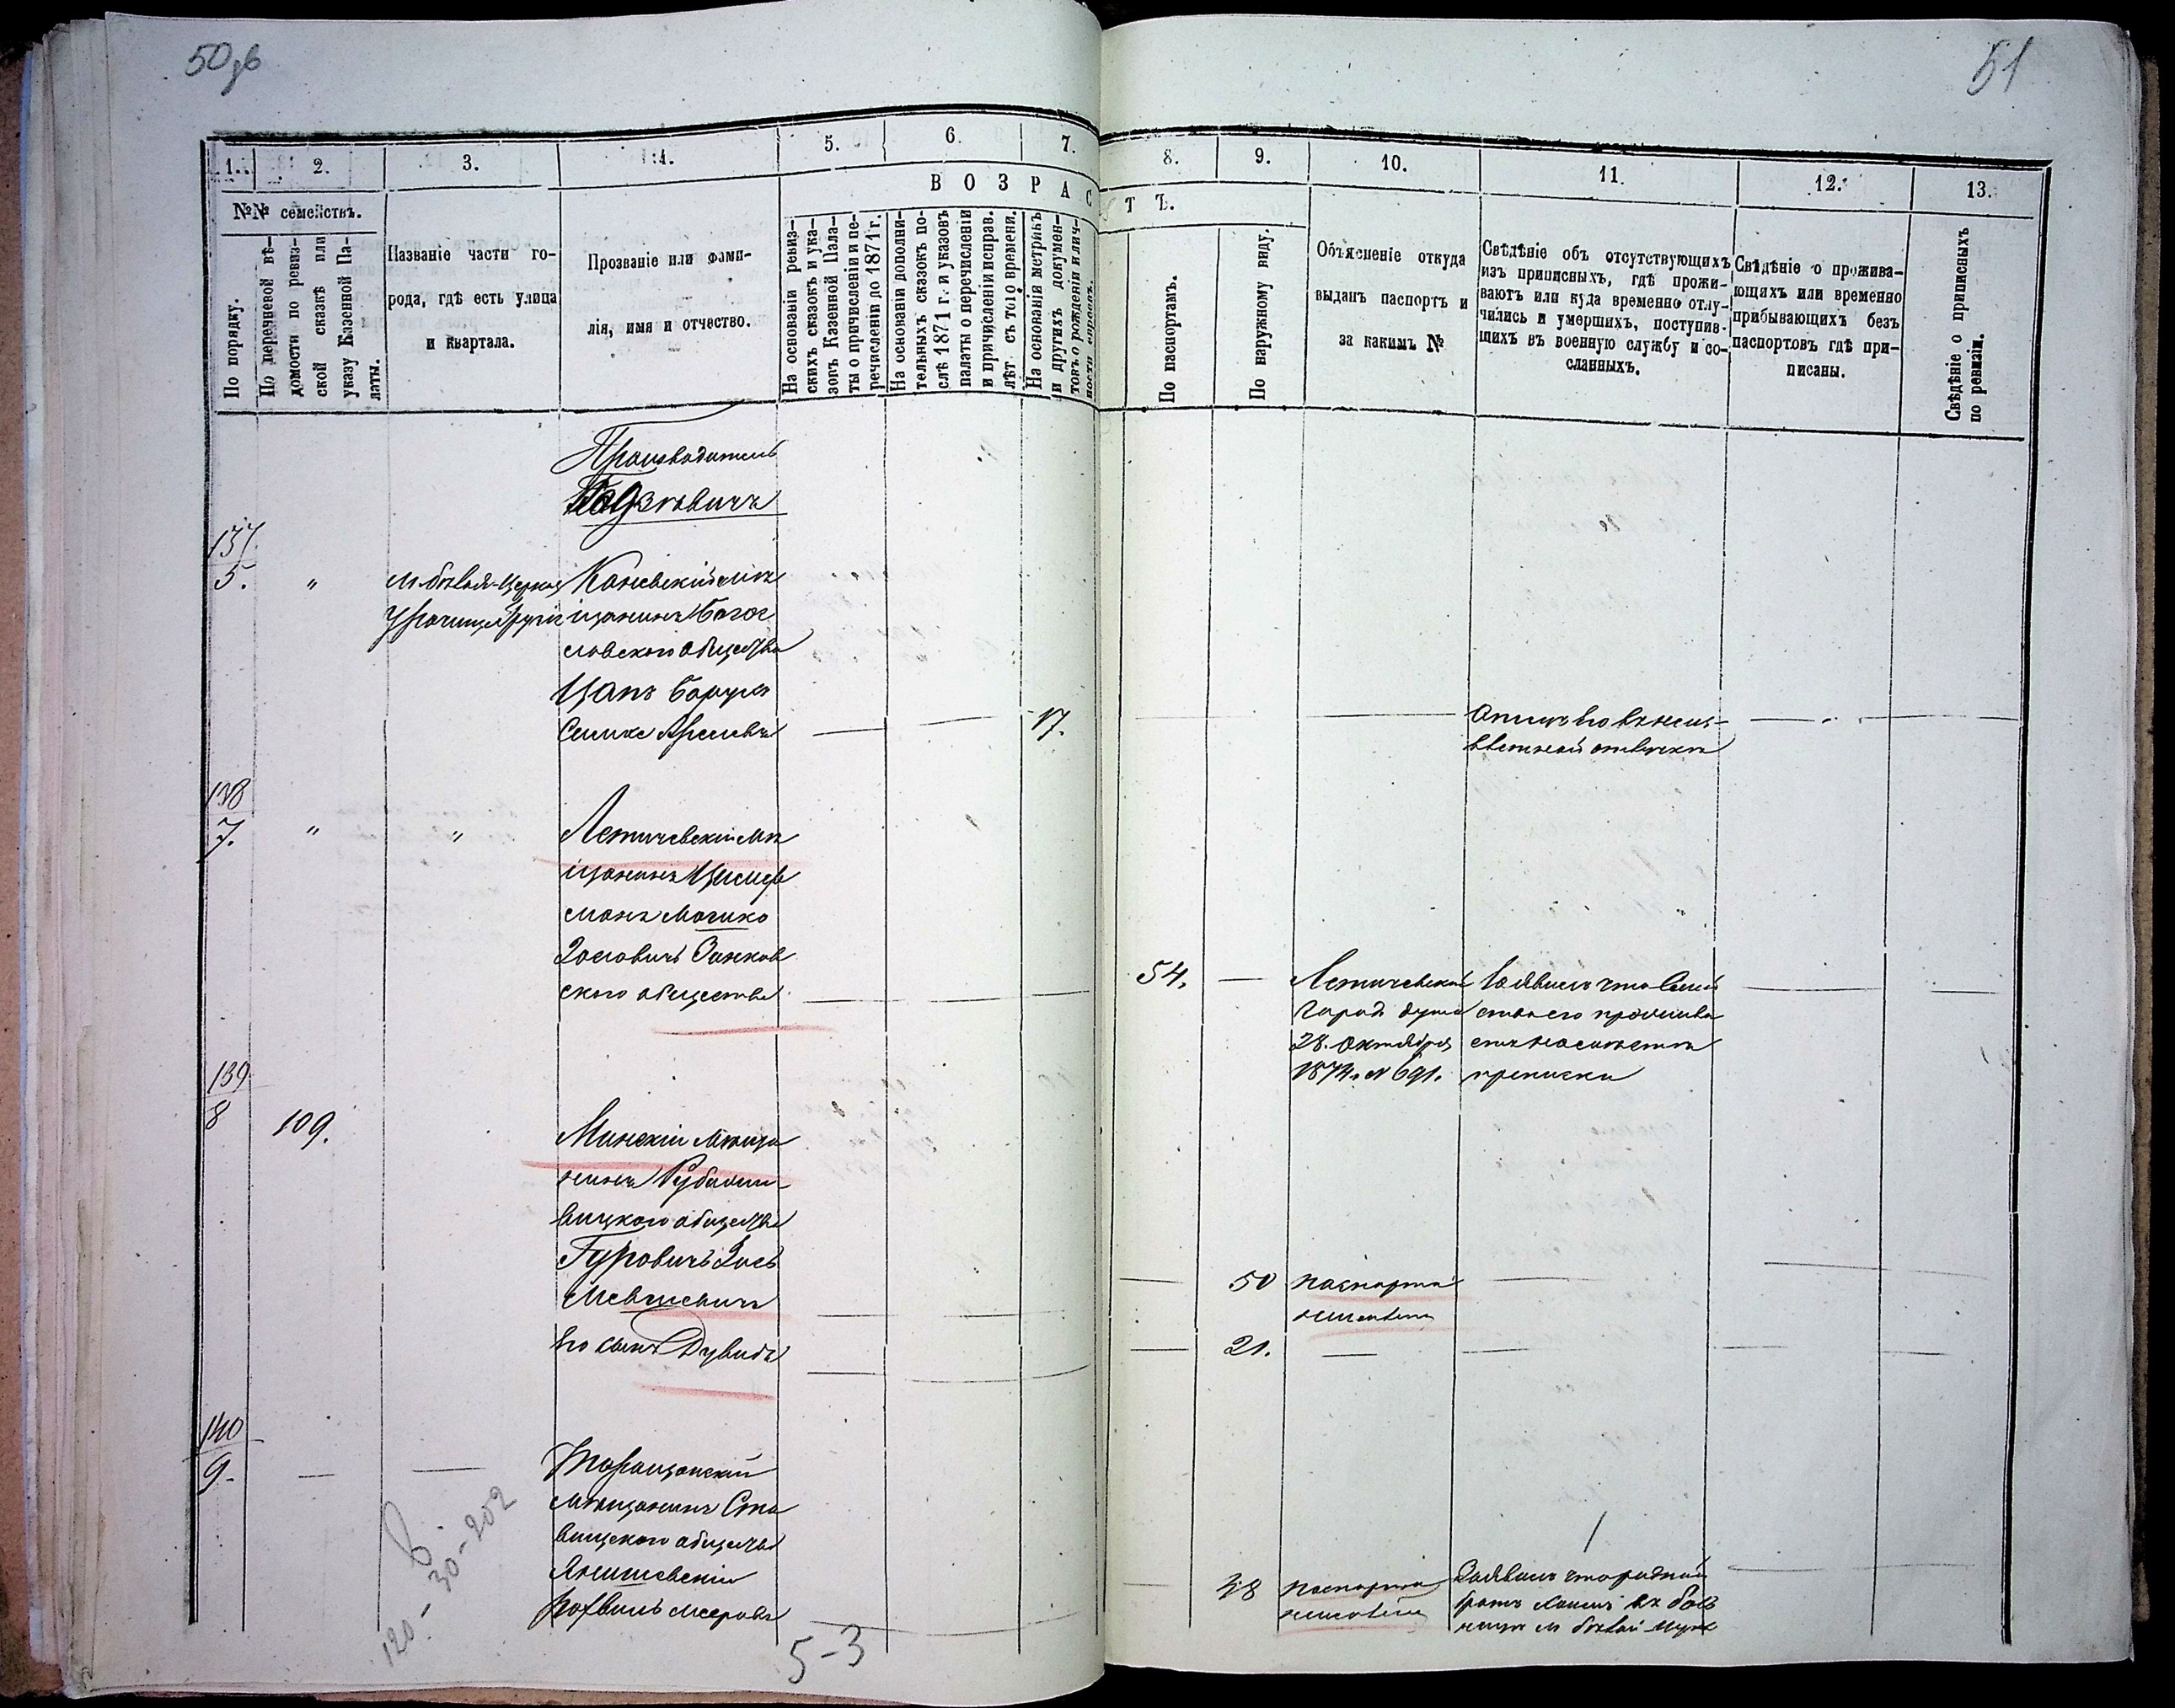 50об
51
1.
2.
3.
4.
5.
6.
7.
8.
9.
10.
11.
12.
13.
№№ семействъ.
ВОЗРАСТЪ.
По порядку.
По перечневой вѣ-
домости по ревиз-
ской сказкѣ или
указу Казенной Па-
латы.
Названіе части го-
рода, гдѣ есть улица
и квартала.
Прозваніе или фами-
лія, имя и отчество.
На основаніи ревиз-
скихъ сказокъ и ука-
зовъ Казенной Пала-
ты о причисленіи и пе-
речисленіи до 1871 г.
На основаніи дополни-
тельныхъ сказокъ по-
слѣ 1871 г. и указовъ
палаты о перечисленіи
и причисленіи исправ.
лѣт. съ того времени.
На основаніи метрикъ
и другихъ докумен-
товъ о рожденіи и лич-
ности евреевъ.
По паспортамъ.
По наружному виду.
Объясненіе откуда
выданъ паспортъ и
за какимъ №
Свѣдѣніе объ отсутствующихъ
изъ приписныхъ, гдѣ прожи-
ваютъ или куда временно отлу-
чились и умершихъ, поступив-
шихъ въ военную службу и со-
сланныхъ.
Свѣдѣніе о прожива-
ющихъ или временно
прибывающихъ безъ
паспортовъ гдѣ при-
писаны.
Свѣдѣніе о приписныхъ
по ревизіи.
Производитель
137
5. "
м. Бѣлая-Церковь
Каневскій мѣ
щанинъ Богос
ловского общества
Цапъ Борухъ
17.
138
7. " "
Летичевскій мѣ
щанинъ Цисер
манъ Мошко
Зословичъ Зинков
ского общества
54.
Летичевской
Город. дума
28. Октября
1874 г. N 691.
Заявилъ что Семей
ство его прожива
етъ на мѣстѣ
приписки
139
8 109.
Минскій мѣща
нинъ
вицкого общества
Гуровичъ Зось
50
паспорта
неимѣетъ
Его сынъ Дувидъ
21.
140
9.
Таращанскій
мѣщанинъ Ста
вищского общества
Янишевскій
Мееровъ
48
паспорта
неимѣетъ
Заявилъ что родной
братъ
120-30-202
5-3